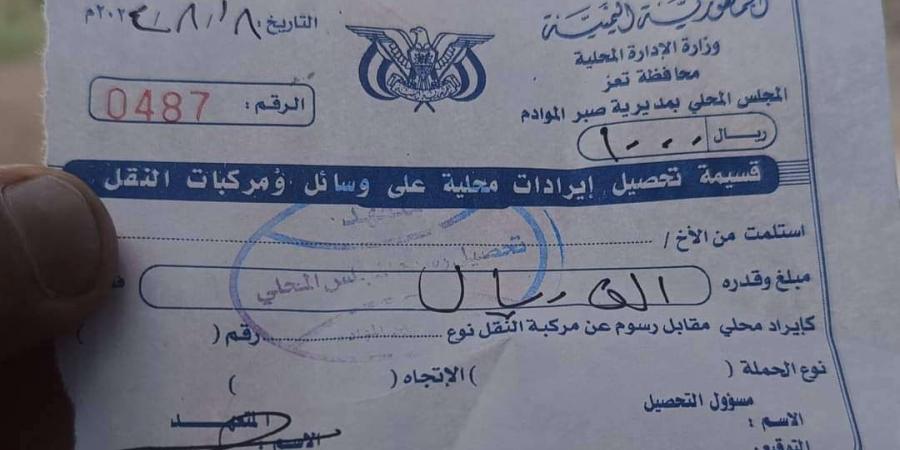 الجمهورية اليمنية
وزارة الإدارة المحلية
محافظة تعز
المجلس المحلي بمديرية صبر الموادم
ريال ١٠٠٠
التاريخ: ٨ / ٨ / ٢٠٢٤م
الرقم: 0487
قسيمة تحصيل إيرادات محلية على وسائل ومركبات النقل
استلمت من الأخ /
مبلغ وقدره الف ريال
كإيراد محلي مقابل رسوم عن مركبة النقل نوع رقم ( )
نوع الحملة ( ) الإتجاه ( )
مسؤول التحصيل
الاسم :
التوقيع
المتعهد
الاسم :
متعهد
تحصيل المجلس المحلي